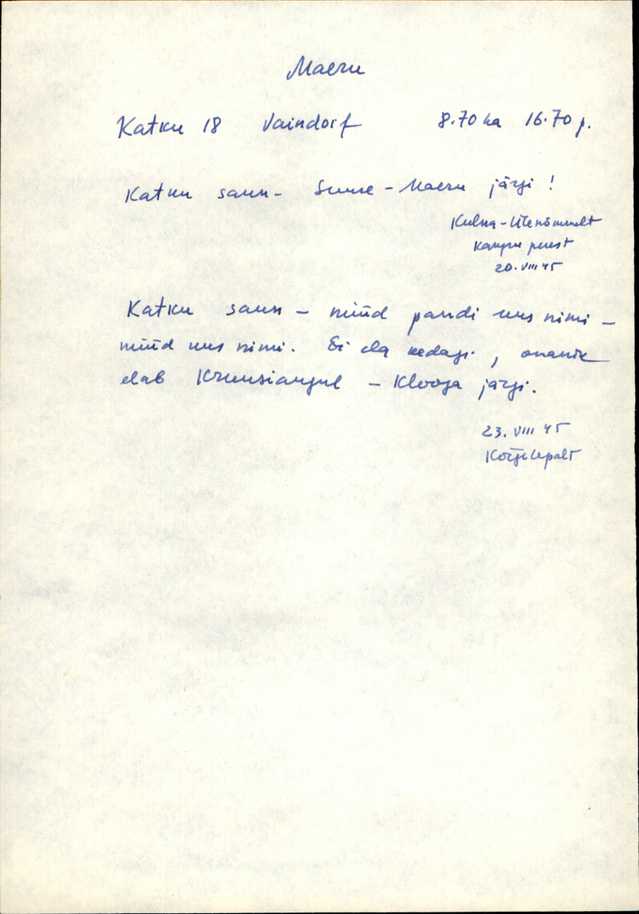 Maeru
Katku 18 Vaindorf 8.70 ha 16.70 p.
Katku saun - Suure - Maeru järgi !
Kulna-
20. VIII 45
Katku saun - nüüd pandi uus nimi -
nüüd uus nimi. Ei ela kedagi, omanik
elab Kruusiaugul - Klooga järgi.
23. VIII 45